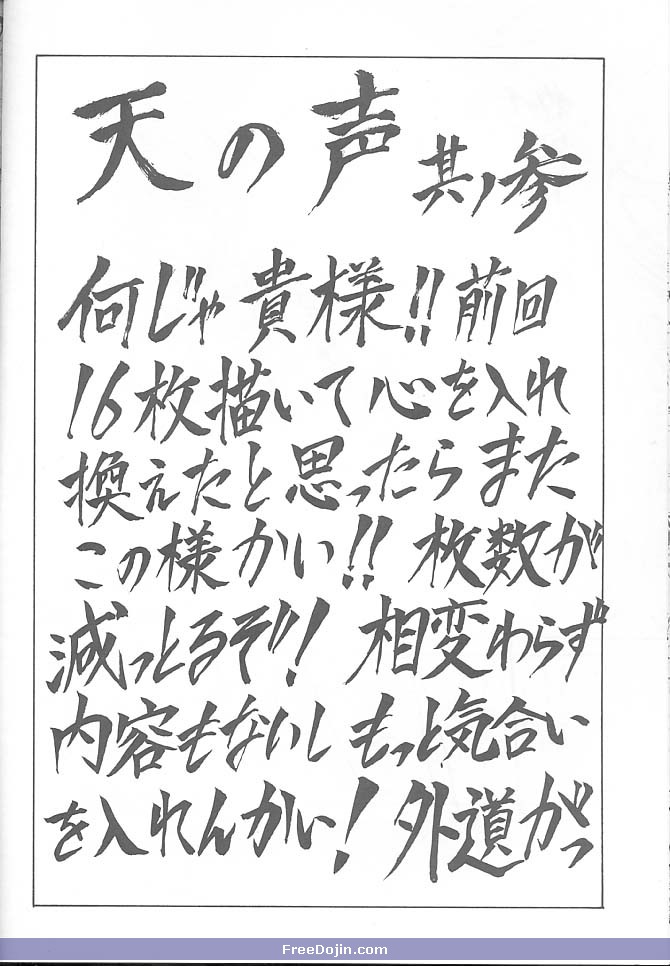 天の声 其ノ参
何じゃ貴様!!前回
16枚描いて心を入れ
換えたと思ったらまた
この様かい!!枚数が
減っとるぞ!相変わらず
内容もないしもっと気合い
を入れんかい!外道がっ
FreeDojin.com